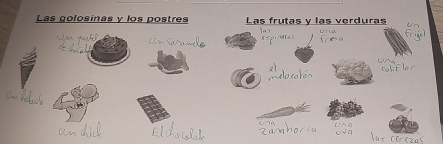 Las golosinas y los postres
Las frutas y las verduras
un pastel
de chocolate
un caramelo
un helado
un chicle
El chocolate
las
espinacas
una
fresa
un
frijol
el
melocotón
una
coliflor
una
zanahoria
una
uva
las cerezas